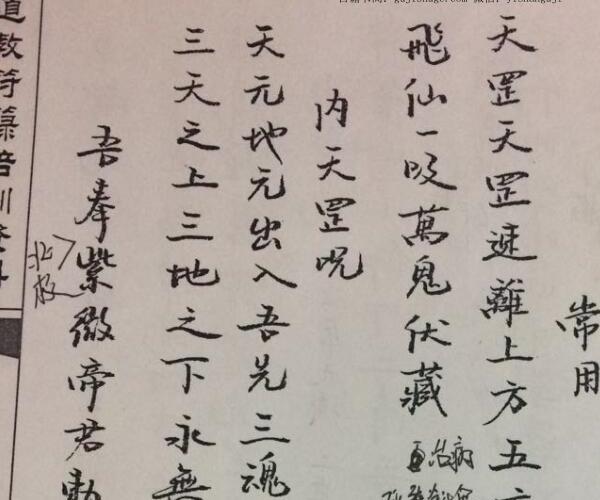 常用
天罡天罡速離上方五
飛仙一吸萬鬼伏藏
治病
内天罡呪
天元地元出入吾先三魂
三天之上三地之下永無
吾奉紫微帝君勅
北極
道教符箓培训